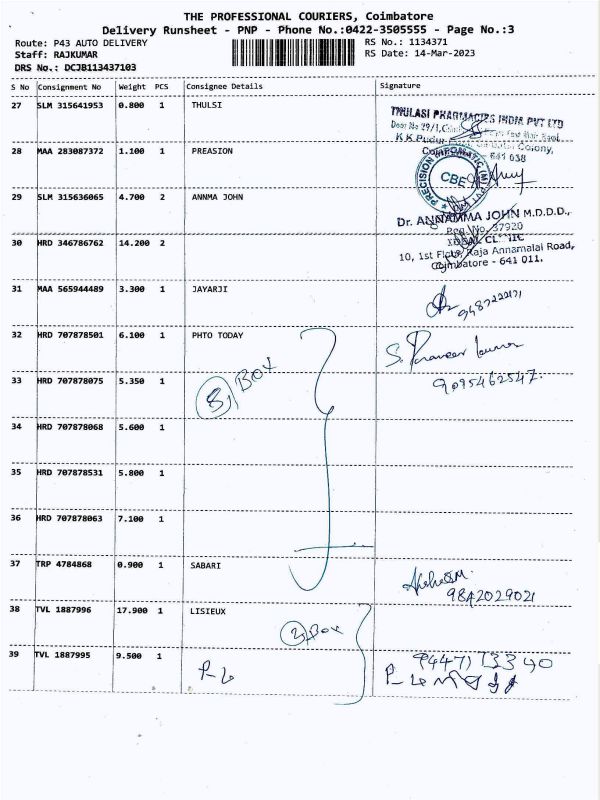 THE PROFESSIONAL COURIERS, Coimbatore
Delivery Runsheet - PNP - Phone No.:0422-3505555 - Page No.:3
Route: P43 AUTO DELIVERY
Staff: RAJKUMAR
DRS No.: DCJB113437103
RS No.: 1134371
RS Date: 14-Mar-2023
S No Consignment No Weight PCS Consignee Details Signature
27 SLM 315641953 0.800 1 THULSI
THULASI PHARMACIES INDIA PVT LTD
28 MAA 283087372 1.100 1 PREASION
Colony,
641 038
PRECISION
CBE
29 SLM 315636065 4.700 2 ANNMA JOHN
Dr. ANNAMMA JOHN M.D.D.D.,
Reg. No. 37920
30 HRD 346786762 14.200 2
10, 1st Floor, Raja Annamalai Road,
Coimbatore - 641 011.
31 MAA 565944489 3.300 1 JAYARJI
32 HRD 707878501 6.100 1 PHTO TODAY
Box
33 HRD 707878075 5.350 1
9095462547.
34 HRD 707878068 5.600 1
35 HRD 707878531 5.800 1
36 HRD 707878063 7.100 1
37 TRP 4784868 0.900 1 SABARI
9842029021
38 TVL 1887996 17.900 1 LISIEUX
Box
39 TVL 1887995 9.500 1